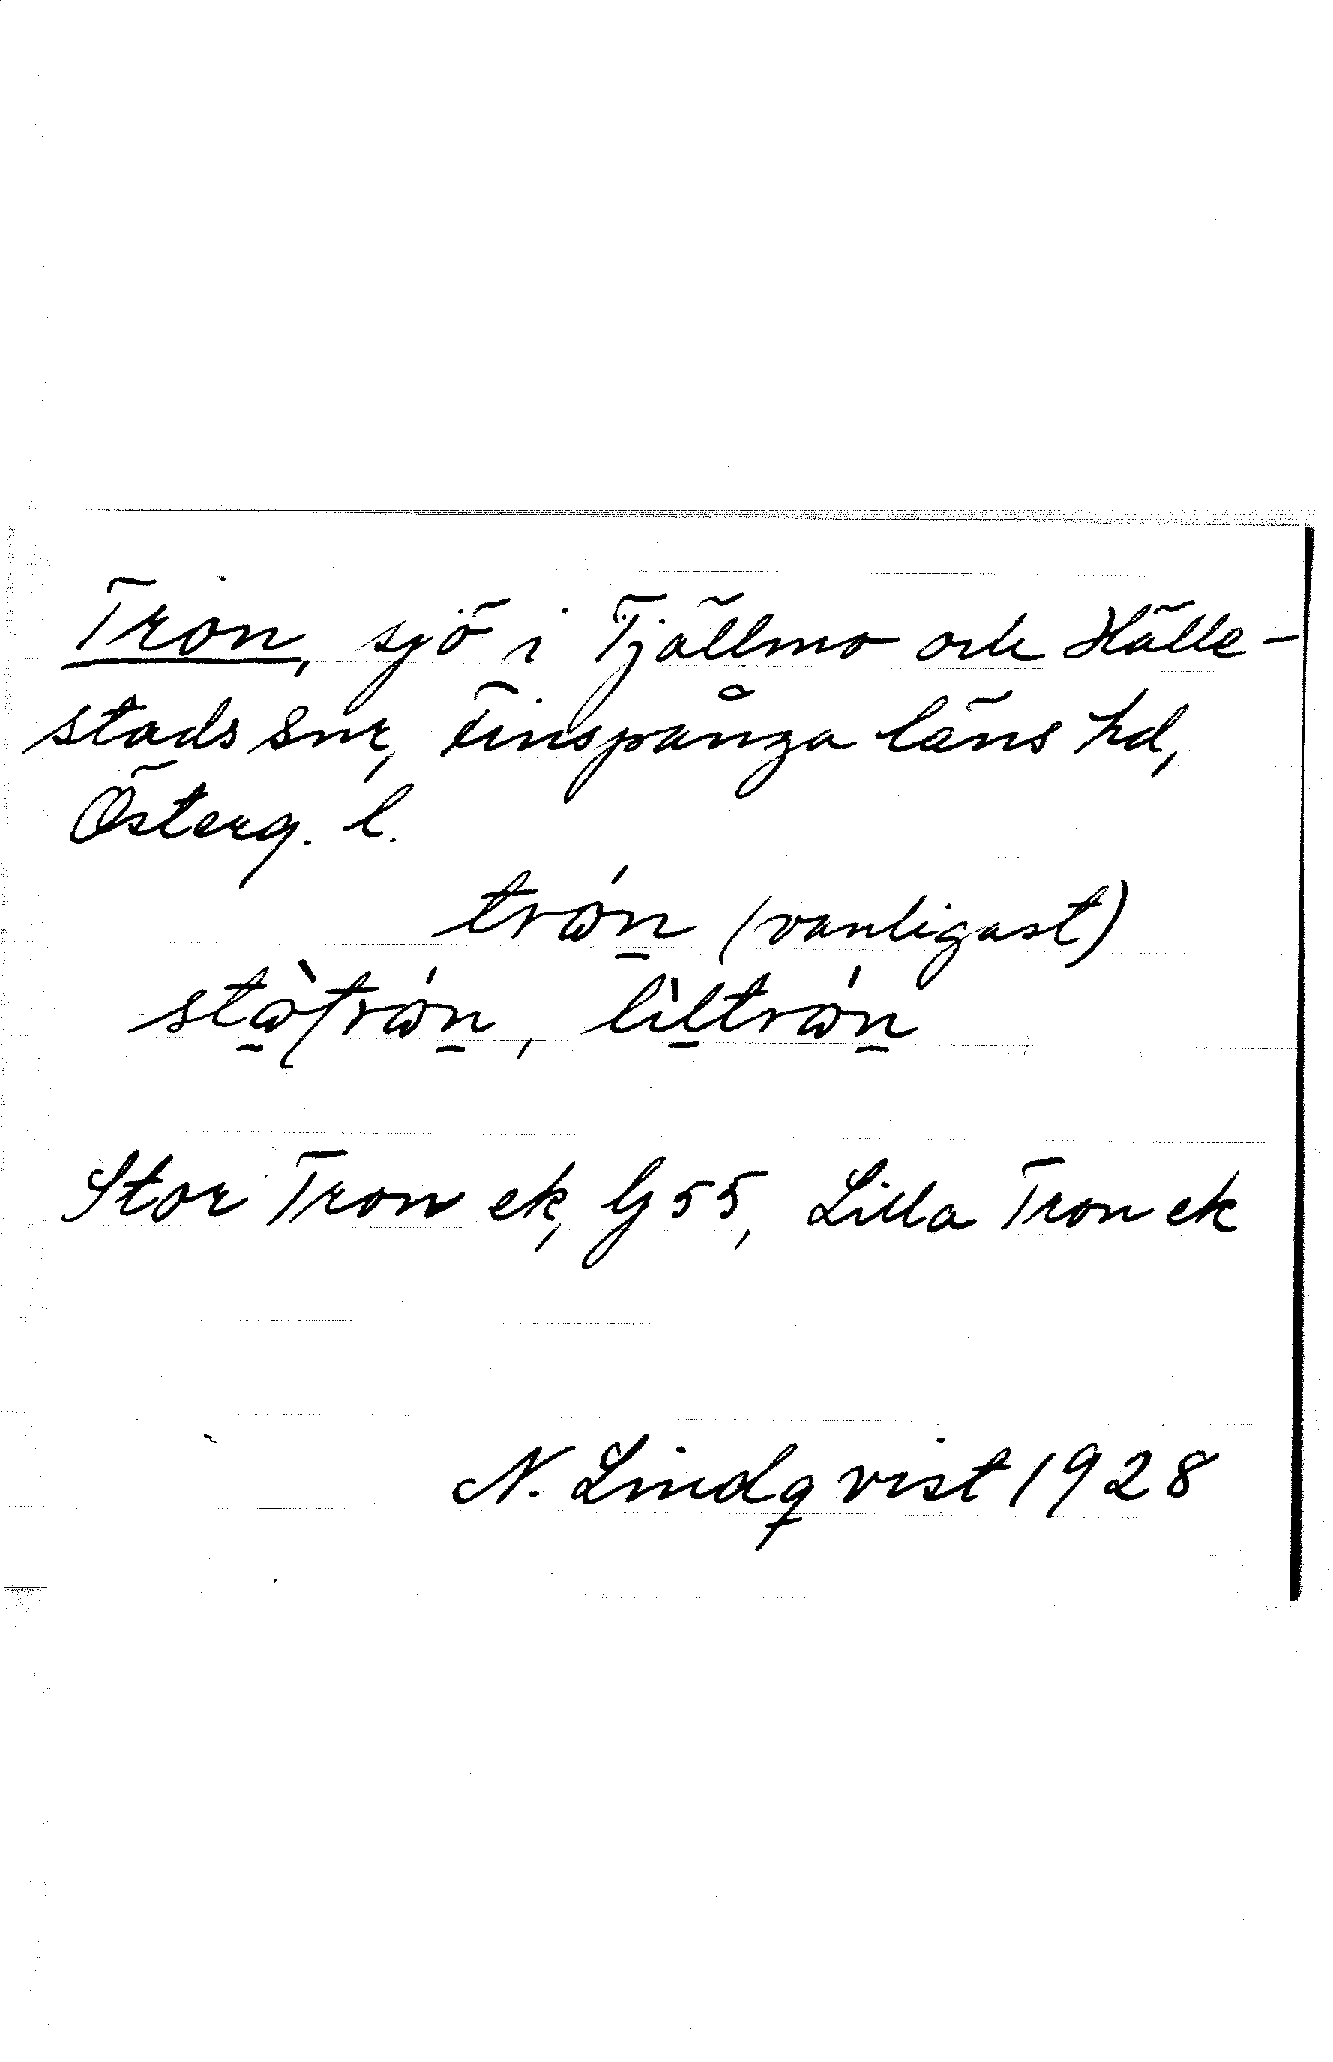 Tron, sjö i Tjällmo och Hälle-
stads snr, Finspånga läns hd,
Österg. l.
trɷ́n̠ (vanligast)
lìl̠trɷ́n̠
Stor Tron ek, Gj 55, Lilla Tron ek
N. Lindqvist 1928